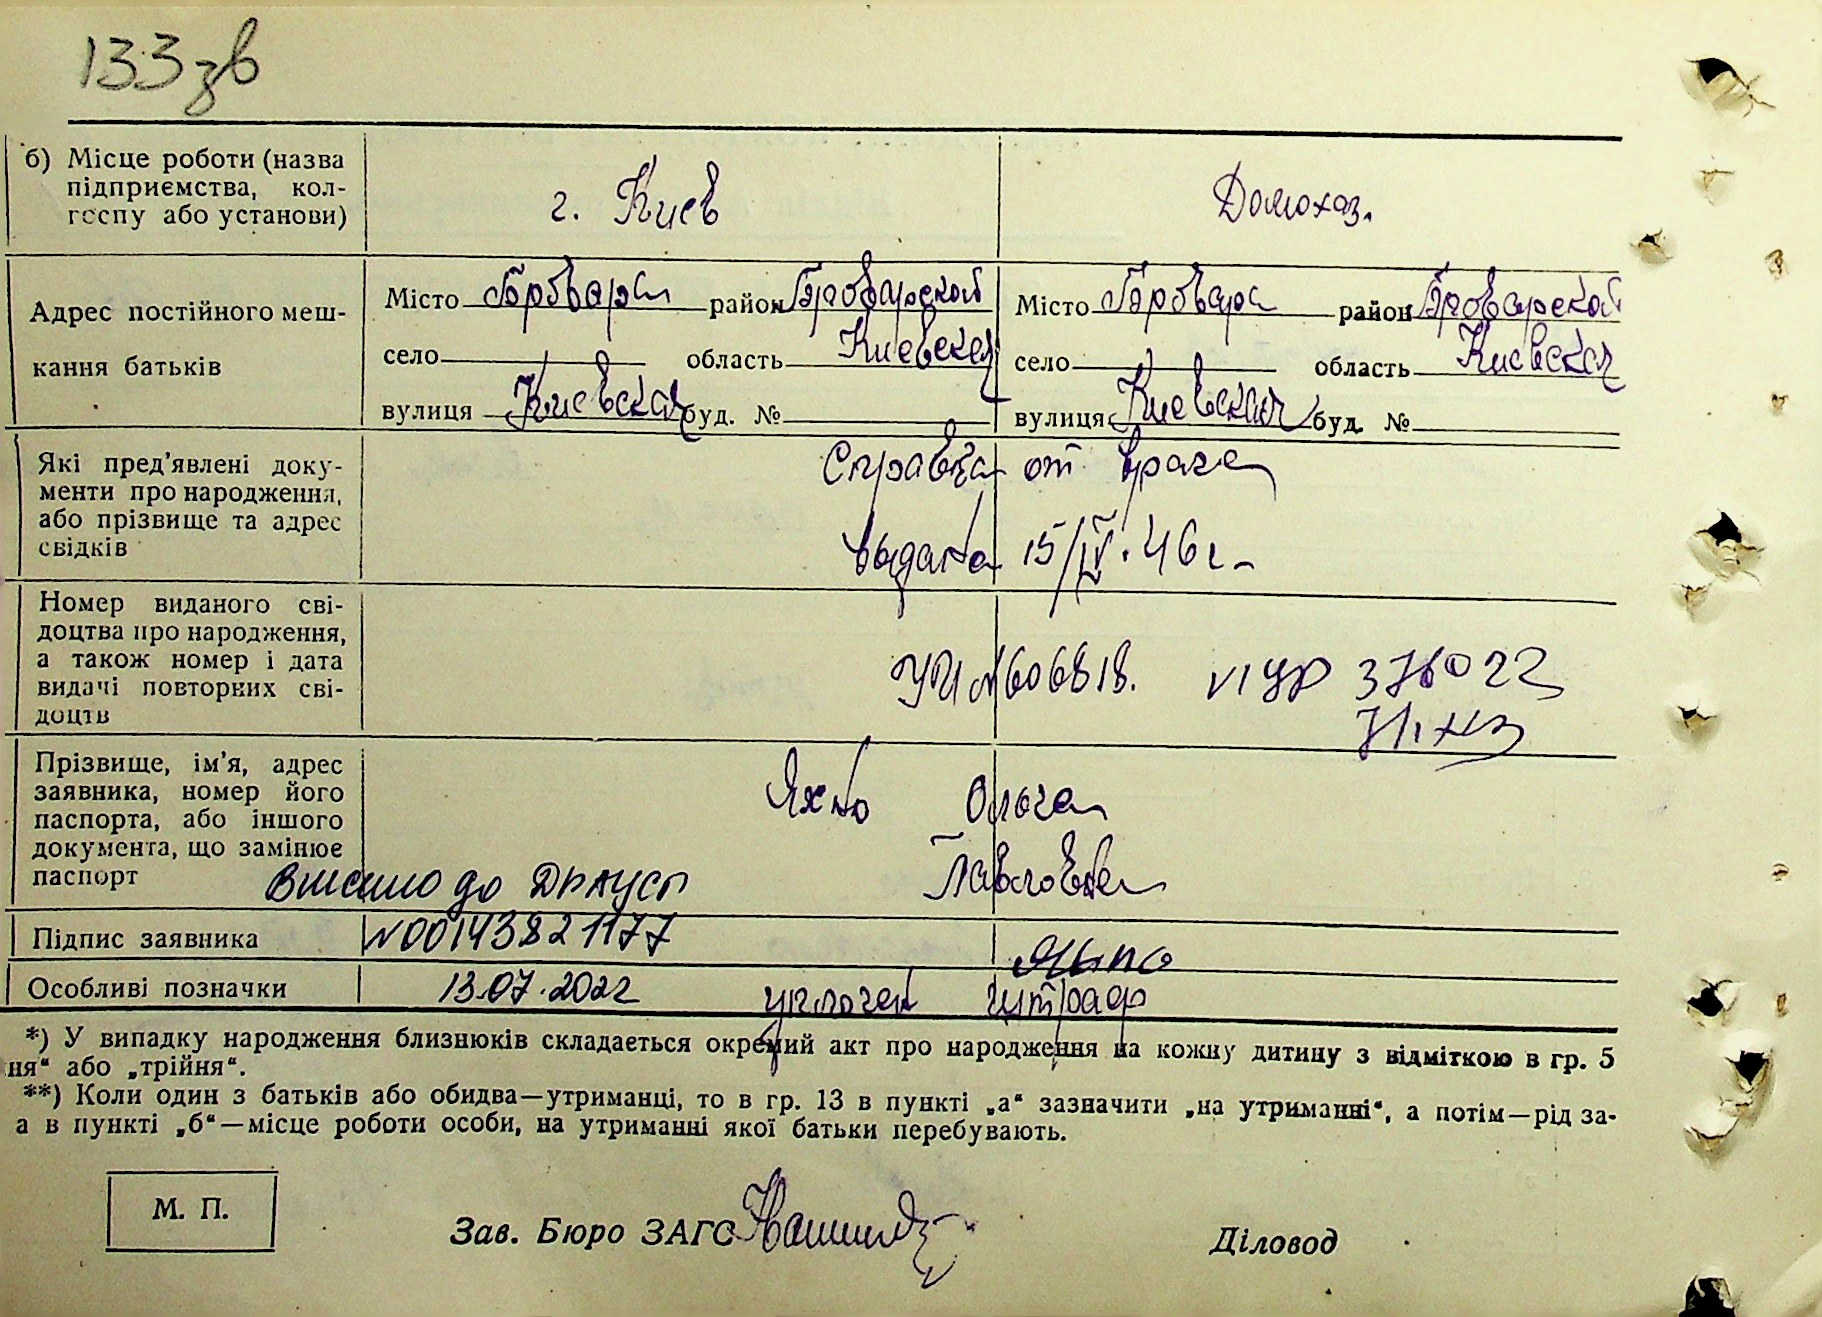 133 зв
б) Місце роботи (назва
підприємства, кол-
госпу або установи)
г. Киев
Домохоз.
Адрес постійного меш-
кання батьків
Місто Бровары район Броварской
село область Киевская
вулиця Киевская буд. №
Місто Бровары район Броварской
село область Киевская
вулиця Киевская буд. №
Які пред'явлені доку-
менти про народження,
або прізвище та адрес
свідків
Справка от врача
выдана 15/IV.46 г.
Номер виданого сві-
доцтва про народження,
а також номер і дата
видачі повторних сві-
доцтв
№606818. VI УР 376022
Прізвище, ім'я, адрес
заявника, номер його
паспорта, або іншого
документа, що замінює
паспорт
Яхно Ольга
Павловна
Внесено до ДРАЦСГ
Підпис заявника
N00143821177
Особливі позначки
13.07.2022
уплочен штраф
*) У випадку народження близнюків складається окремий акт про народження на кожну дитину з відміткою в гр. 5
ня“ або „трійня“.
**) Коли один з батьків або обидва—утриманці, то в гр. 13 в пункті „а“ зазначити „на утриманні“, а потім—рід за-
а в пункті „б“—місце роботи особи, на утриманні якої батьки перебувають.
М. П.
Зав. Бюро ЗАГС
Діловод